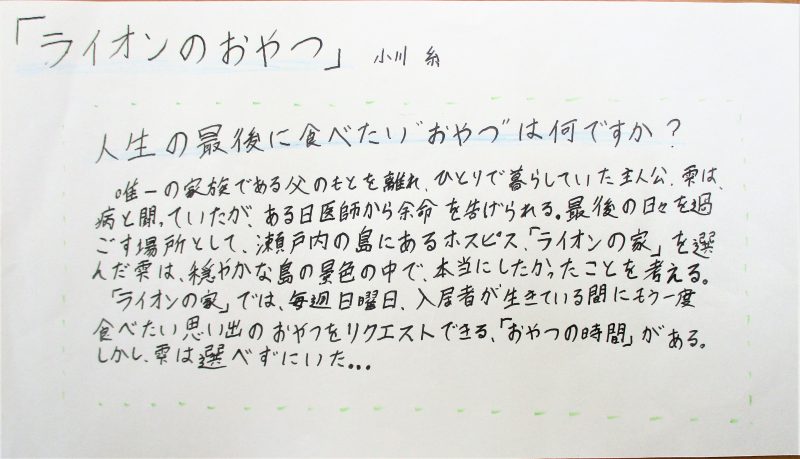 「ライオンのおやつ」 小川 糸
人生の最後に食べたい"おやつ"は何ですか？
唯一の家族である父のもとを離れ、ひとりで暮らしていた主人公、雫は、
病と闘っていたが、ある日医師から余命を告げられる。最後の日々を過
ごす場所として、瀬戸内の島にあるホスピス、「ライオンの家」を選
んだ雫は、穏やかな島の景色の中で、本当にしたかったことを考える。
「ライオンの家」では、毎週日曜日、入居者が生きている間にもう一度
食べたい思い出のおやつをリクエストできる、「おやつの時間」がある。
しかし、雫は選べずにいた...